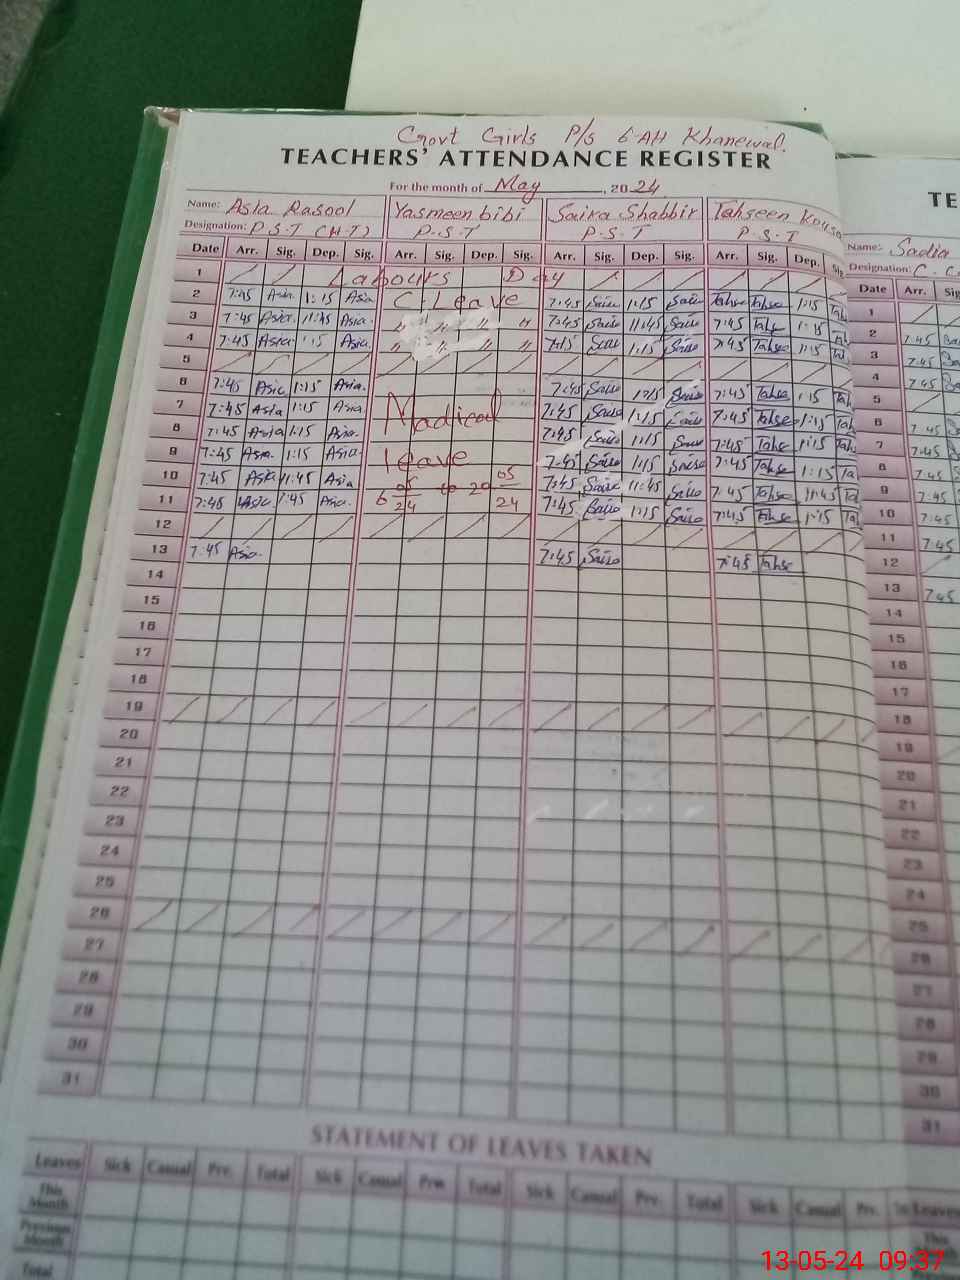 Govt Girls P/S 6-AH Khanewal.
TEACHERS' ATTENDANCE REGISTER
For the month of May, 2024
Name: Asia Rasool Yasmeen bibi Saira Shabbir Tahseen
Designation: P.S.T (H-T) P.S.T P.S.T P.S.T
Date Arr. Sig. Dep. Sig. Arr. Sig. Dep. Sig. Arr. Sig. Dep. Sig. Arr. Sig. Dep. Sig
1 Labours Day
2 7:45 Asia 1:15 Asia C-Leave 7:45 Saira 1:15 Saira Tahse Tahse 1:15 Tah
3 7:45 Asia. 11:45 Asia. " " " 7:45 Saira 11:45 Saira 7:45 Tahse 1:15 Tah
4 7:45 Asia 1:15 Asia. " " " " Saira 1:15 Saira 7:45 Tahse 1:15 Tah
5
6 7:45 Asia 1:15 Asia. 7:45 Saira 1:15 Saira 7:45 Tahse 1:15 Tah
7 7:45 Asia 1:15 Asia. Madical 7:45 Saira 1:15 Saira 7:45 Tahse 1:15 Tah
8 7:45 Asia 1:15 Asia. 7:45 Saira 1:15 Saira 7:45 Tahse 1:15 Tah
9 7:45 Asia. 1:15 Asia. leave 7:45 Saira 1:15 Saira 7:45 Tahse 1:15 Ta
10 7:45 Asia 11:45 Asia 7:45 Saira 11:45 Saira 7:45 Tahse 11:45 Ta
11 7:45 Asia 1:45 Asia. 6 05/24 to 20 05/24 7:45 Saira 1:15 Saira 7:45 Tahse 1:15 Ta
12
13 7:45 Asia. 7:45 Saira 7:45 Tahse
14
15
16
17
18
19
20
21
22
23
24
25
26
27
28
29
30
31
STATEMENT OF LEAVES TAKEN
Leaves Sick Casual Prv. Total Sick Casual Prv Total Sick Casual Prv. Total Sick Casual Prv.
This Month
Previous Month
Total
TE
Name: Sadia
Designation: C.
Date Arr. Sig
1
2 7:45
3 7:45
4 7:45
5
6 7:45
7 7:45
8 7:45
9 7:45
10 7:45
11 7:45
12
13 7:45
14
15
16
17
18
19
20
21
22
23
24
25
26
27
28
29
30
31
Leaves
This Month
13-05-24 09:37